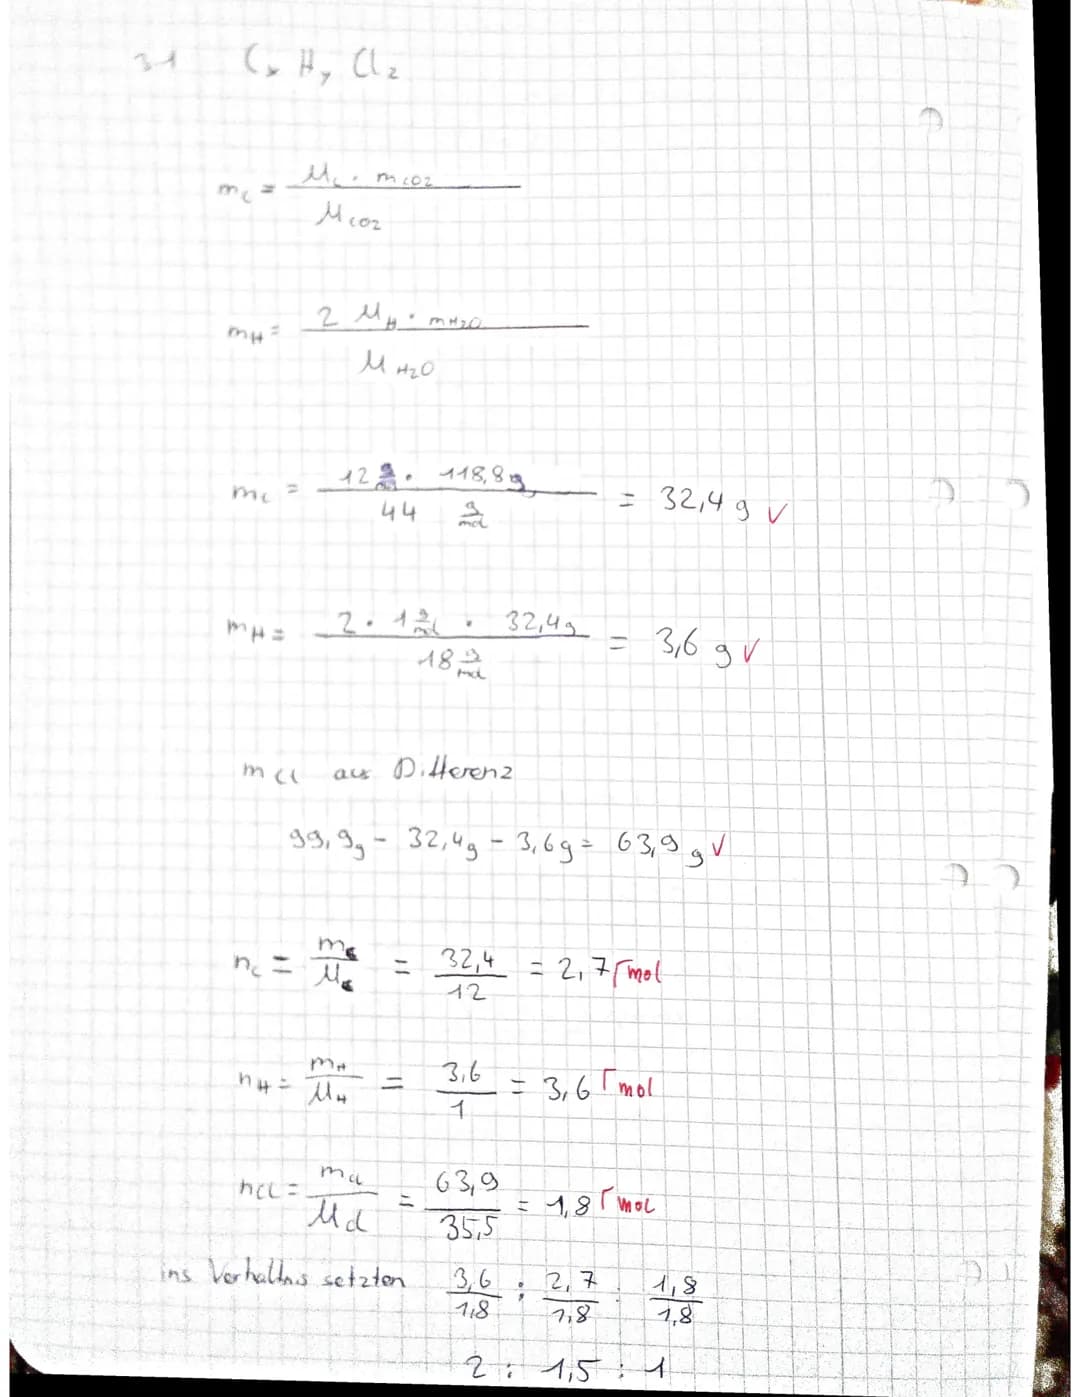 31 CxHyClz
mc = Mc · mCO2 / MCO2
mH = 2 MH · mH2O / MH2O
mc = 12 g/mol · 118,8g / 44 g/mol = 32,4 g √
mH = 2 · 1 g/mol · 32,4g / 18 g/mol = 3,6 g √
mCl aus Differenz
99,9g - 32,4g - 3,6g = 63,9 g √
nc = mc / Mc = 32,4 / 12 = 2,7 ┌ mol
nH = mH / MH = 3,6 / 1 = 3,6 ┌ mol
nCl = mCl / MCl = 63,9 / 35,5 = 1,8 ┌ mol
ins Verhaltnis setzten 3,6 / 1,8 : 2,7 / 1,8 : 1,8 / 1,8
2 : 1,5 : 1